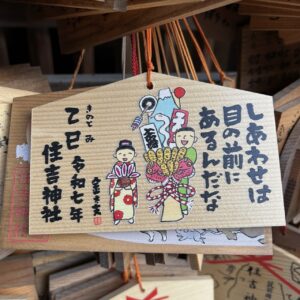 しあわせは
目の前に
あるんだな
きのと み
乙巳 令和七年
住吉神社